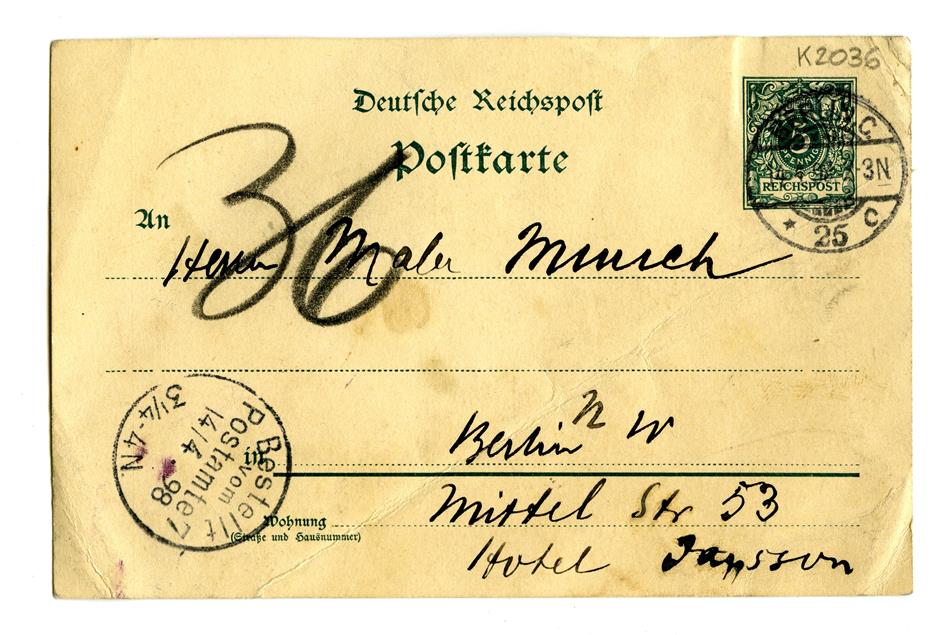 K2036
Deutsche Reichspost
Postkarte
36
5
PFENNIG
REICHSPOST
C
-3N
* 25 C
An
Herrn Maler Munsch
in Berlin N W
Wohnung Mittel Str 53
(Straße und Hausnummer)
Hotel Janson
Bestellt
vom
Postamte 7
14/4. 98
3¼-4N.